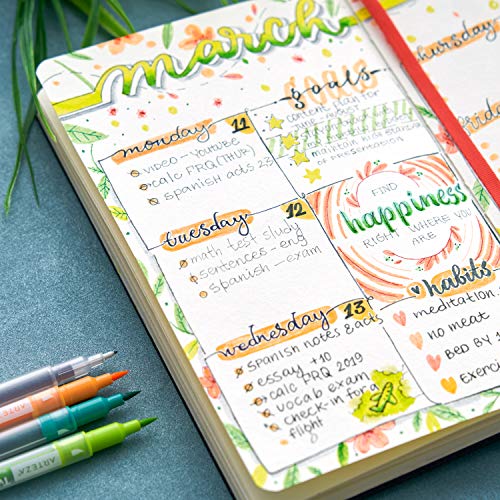 march
monday 11
video - youtube
calc PRQ (THUR)
spanish acts
goals
content plan for
maintain
of presentation
tuesday 12
math test study
sentences - eng
spanish - exam
FIND
happiness
RIGHT WHERE YOU
ARE
wednesday 13
spanish notes & acts
essay +10
calc PRQ 2019
vocab exam
check-in for a
flight
habits
meditation
no meat
BED BY
Exerci
thursday
ARTEZA
ARTEZA